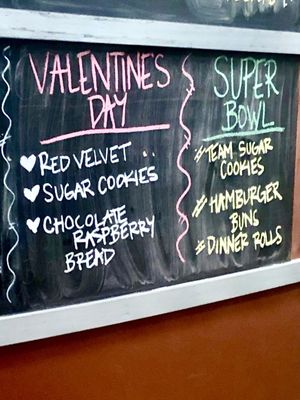 VALENTINES
DAY
RED VELVET
SUGAR COOKIES
CHOCOLATE
RASPBERRY
BREAD
SUPER
BOWL
TEAM SUGAR
COOKIES
HAMBURGER
BUNS
DINNER ROLLS